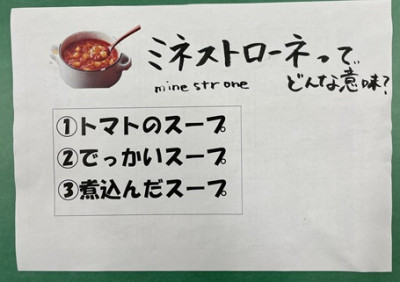 ミネストローネって
どんな意味?
minestrone
①トマトのスープ
②でっかいスープ
③煮込んだスープ